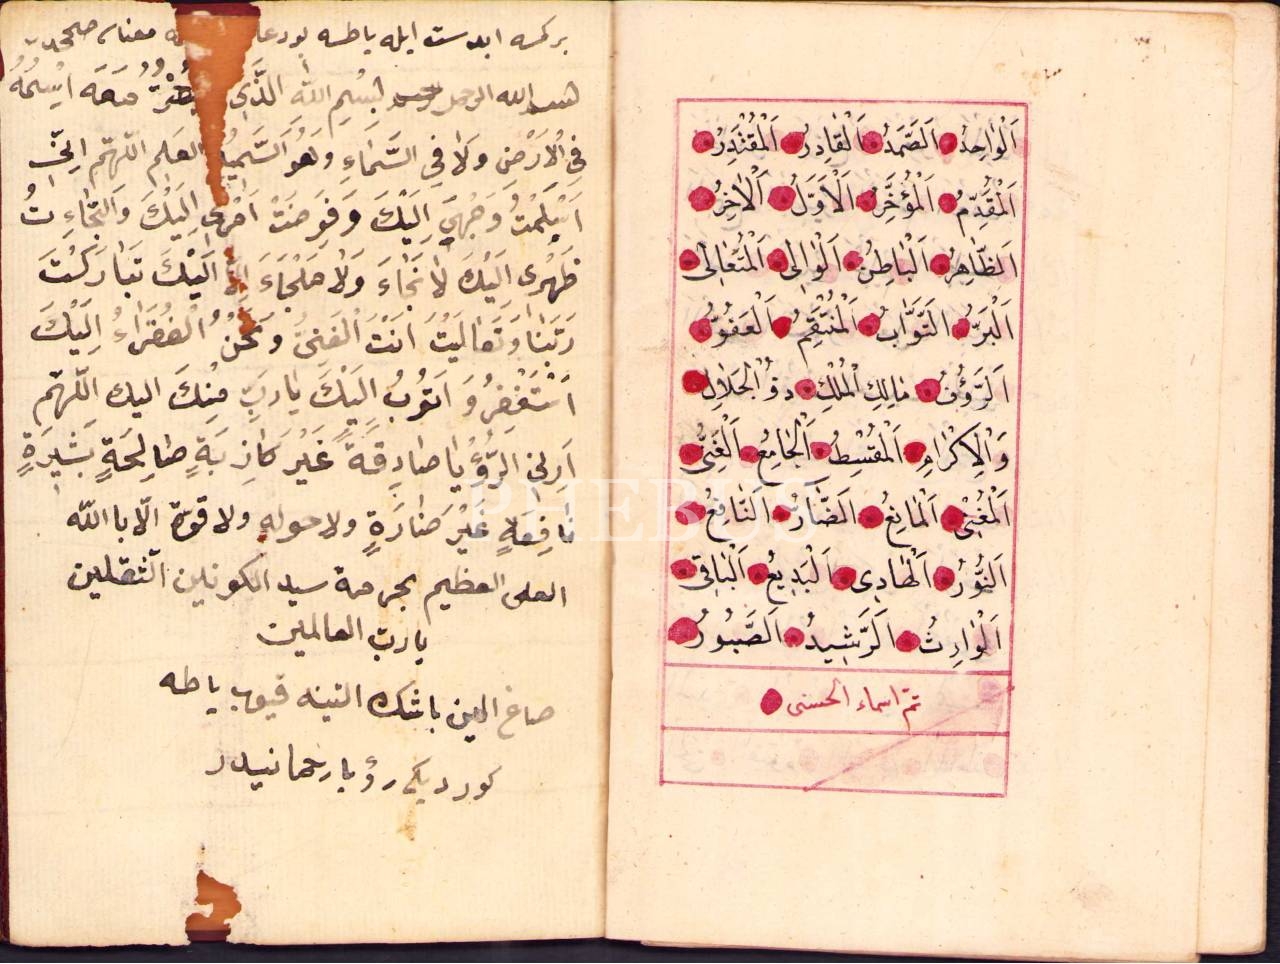 اَلْوٰاحِدُ اَلصَّمَدُ اَلْقٰادِرُ اَلْمُقْتَدِرُ
اَلْمُقَدِّمُ اَلْمُؤَخِّرُ اَلْاَوَّلُ اَلْاٰخِرُ
اَلظّٰاهِرُ اَلْبٰاطِنُ اَلْوٰالِى اَلْمُتَعٰالِى
اَلْبَرُّ اَلتَّوَّابُ اَلْمُنْتَقِمُ اَلْعَفُوُّ
اَلرَّؤُفُ مٰالِكَ الْمُلْكِ ذُو الْجَلَالِ
وَالْاِكْرٰامِ اَلْمُقْسِطُ اَلْجٰامِعُ اَلْغَنِىُّ
اَلْمُغْنِى اَلْمٰانِعُ اَلضَّآرُّ اَلنّٰافِعُ
اَلنُّوْرُ اَلْهٰادِى اَلْبَدِيعُ اَلْبٰاقِى
اَلْوٰارِثُ اَلرَّشِيدُ اَلصَّبُورُ
تم اسماء الحسنى
بر كمسه ابدست ايله ياطسه بو دعا معناسى صحيحدر
بسم الله الرحمن الرحيم بِسْمِ اللّٰهِ الَّذِى مَعَهَ اسْمُهُ
فِى الْاَرْضِ وَلَا فِى السَّمَاءِ وَهُوَ السَّمِيعُ العَلِيم اَللّٰهُمَّ اِنِّى
اَسْلَمْتُ وَجْهِىَ اِلَيْكَ وَفَوَضْتُ اَمْرِى اِلَيْكَ وَالْتَجَاءِتُ
ظَهْرِى اِلَيْكَ لَا نَجَاءَ وَلَا مَلْجَاءَ اِلَّا اِلَيْكَ تَبَارَكْتَ
رَبَّنَا وَتَعَالَيْتَ اَنْتَ الْغَنِىُّ وَنَحْنُ الْفُقَرَاءُ اِلَيْكَ
اَسْتَغْفِرُ وَ اَتُوبُ اِلَيْكَ يَا رَبِّ مِنْكَ اليك اللّٰهُمَّ
اَرِنِى الرُّؤْيَا صَادِقَةً غَيْرَ كَاذِبَةٍ صَالِحَةٍ بَشِيرَةٍ
نَافِعَةٍ غَيْرَ ضَارَةٍ ولا حول ولا قوة الّا با اللّه
العلى العظيم بحرمة سيد الكونين الثقلين
يا ربّ العالمين
صاغ الين باشك التينه قيوب ياطه
كورديكى رؤيا رحمانيدر
PHEBUS